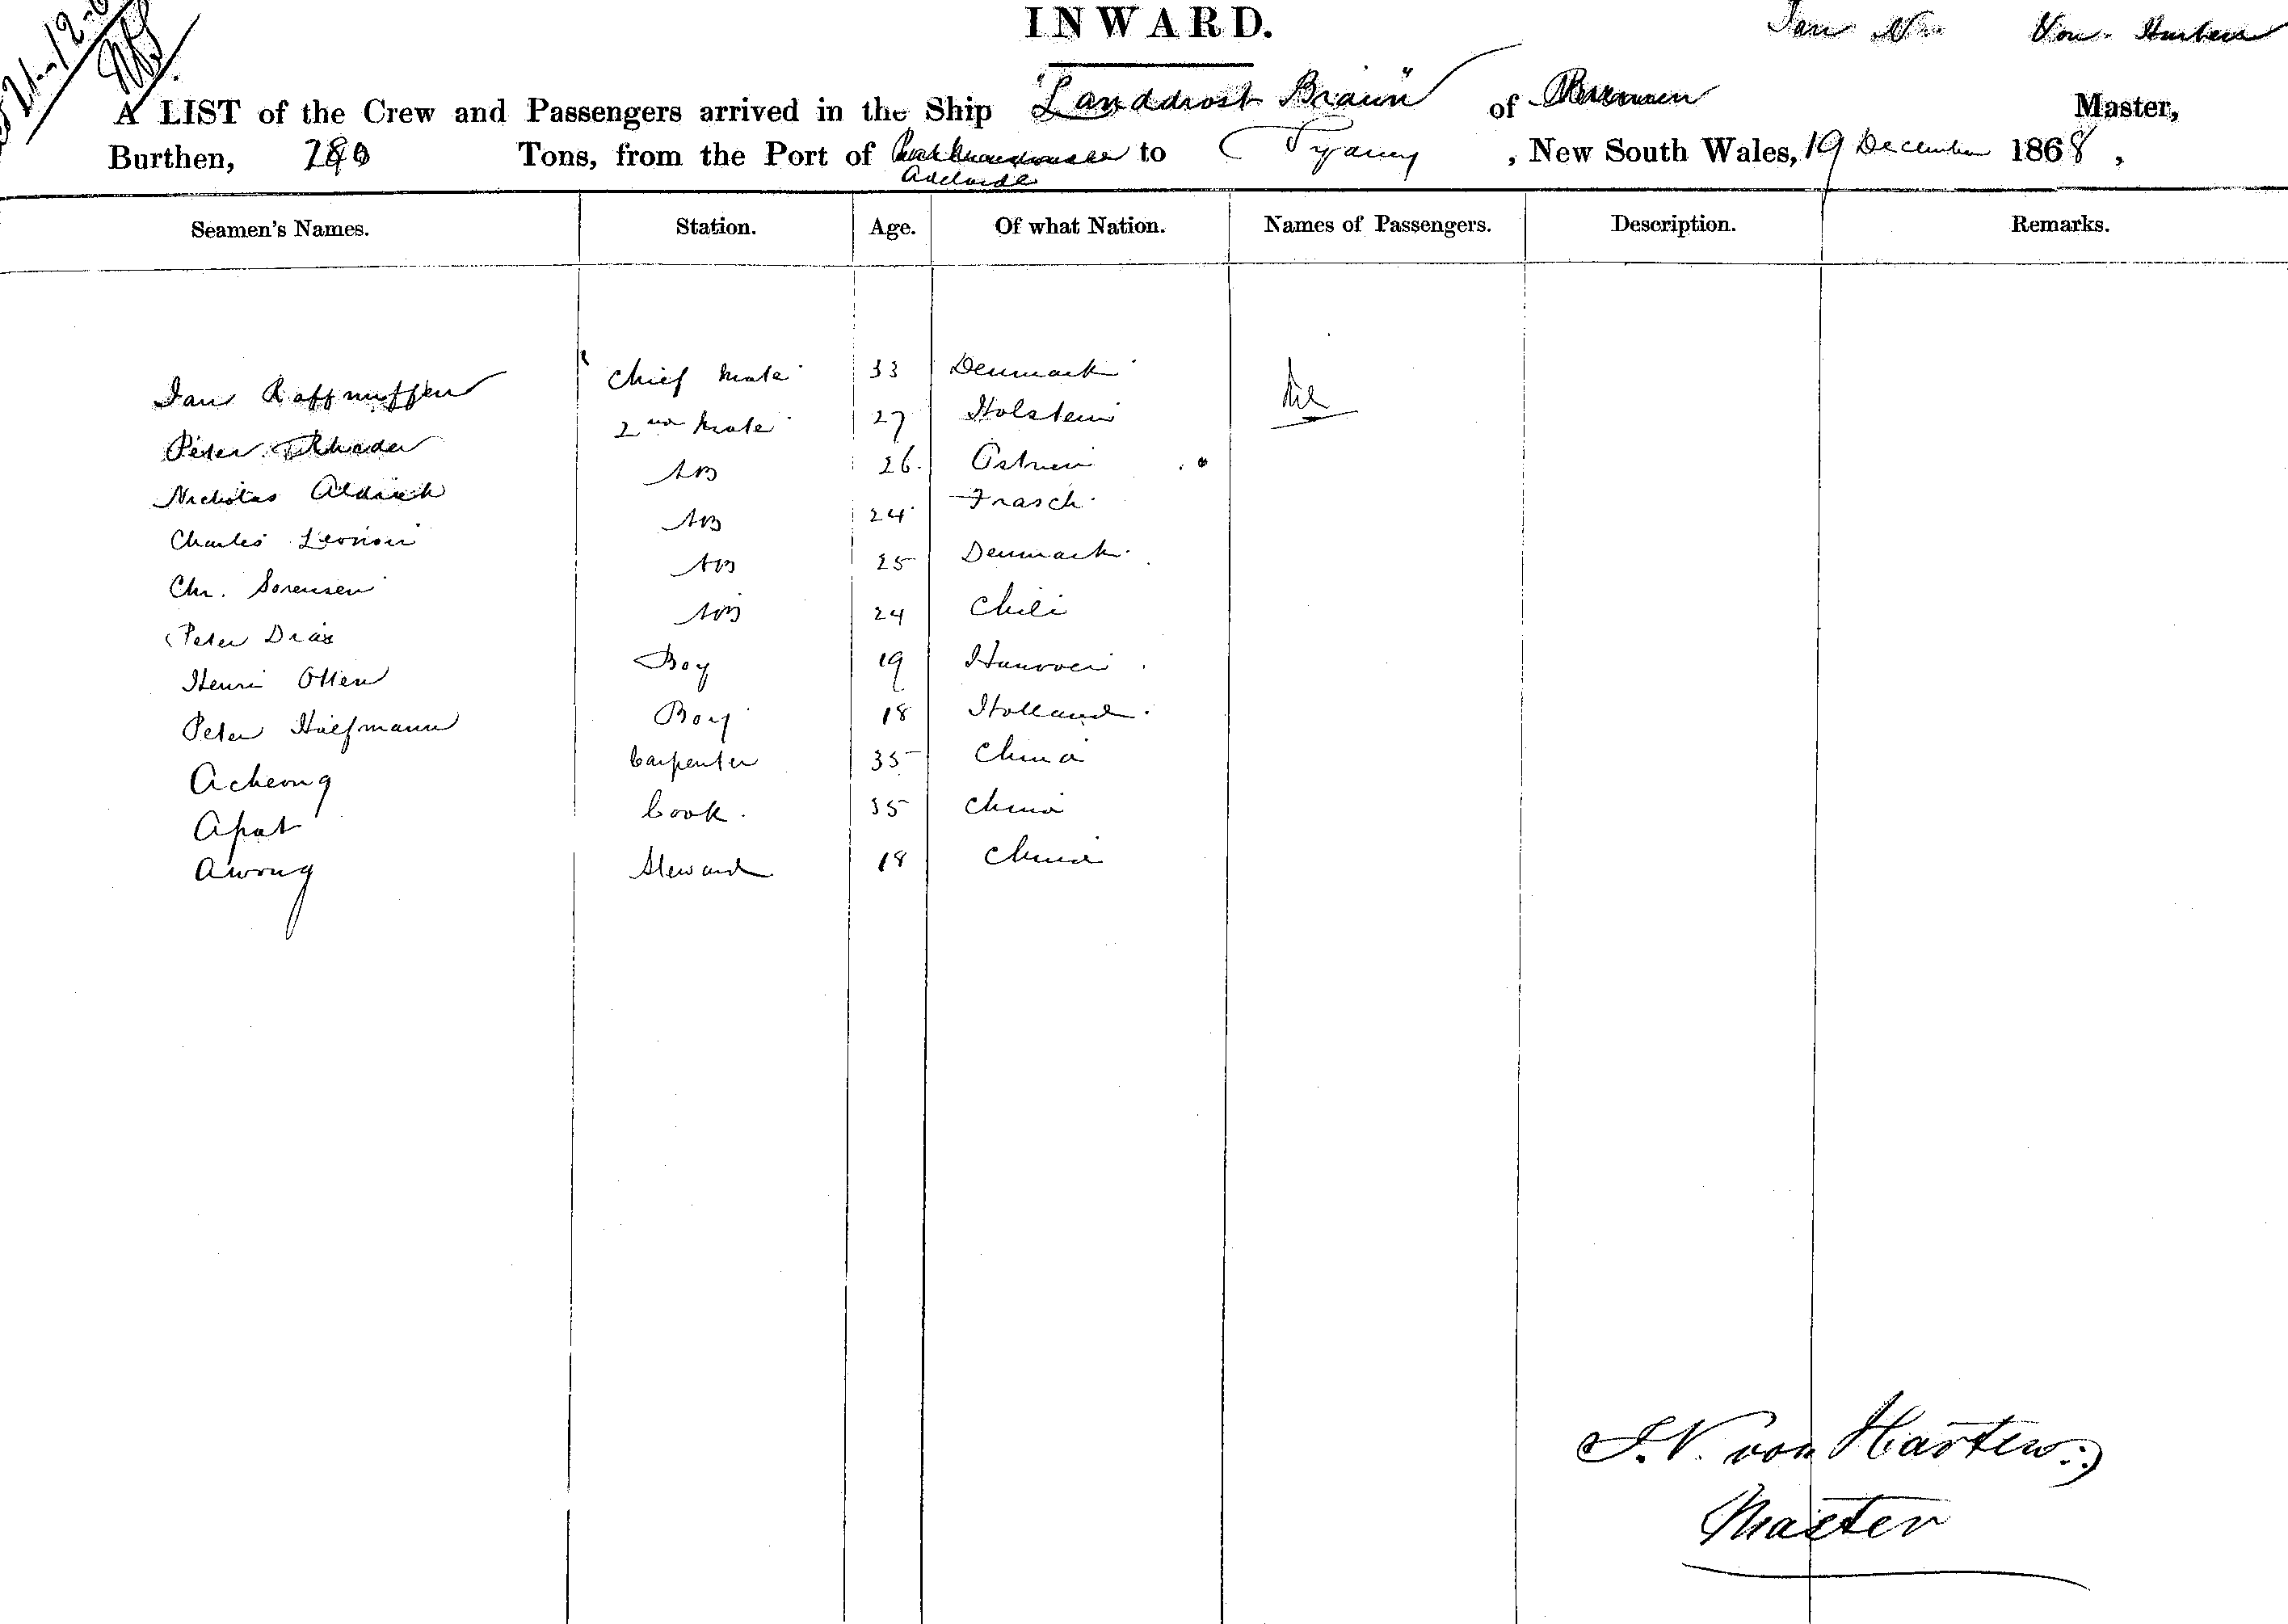 INWARD.
Jan Von Harten
21-12-6
A LIST of the Crew and Passengers arrived in the Ship "Landdrost Braun" of Bremen Master,
Burthen, 280 Tons, from the Port of to Sydney, New South Wales, 19 December 1868,
Adelaide
Seamen's Names. Station. Age. Of what Nation. Names of Passengers. Description. Remarks.
Jan Chief Mate 33 Denmark Nil
Peter Rhader 2nd Mate 27 Holstein
Nicholas Aldrich AB 26 
Charles AB 24
Chr. Sorensen AB 25 Denmark
Peter Diaz AB 24 Chili
Henri Otten Boy 19 Hannover
Peter Boy 18 Holland
Acheong Carpenter 35 China
Apat Cook 35 China
Awong Steward 18 China
J.N. von Harten
Master